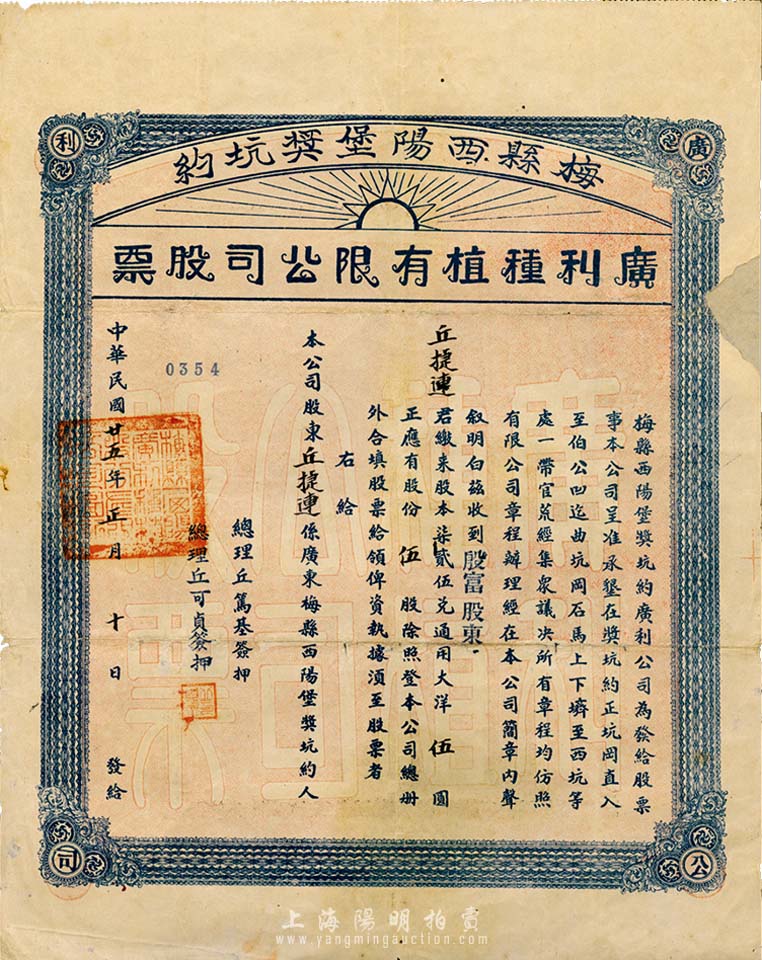 梅縣西陽堡獎坑約
廣利種植有限公司股票
廣
利
公
司
梅縣西陽堡獎坑約廣利公司為發給股票
事本公司呈准承墾在獎坑約正坑岡直入
至伯公凹迄曲坑岡石馬上下㙺至西坑等
處一帶官荒經集衆議决所有章程均仿照
有限公司章程辦理經在本公司簡章內聲
叙明白茲收到股富股東
丘捷連君繳來股本柒貳伍兌通用大洋伍圓
正應有股份伍股除照登本公司總册
外合填股票給領俾資執據湏至股票者
右給
本公司股東丘捷連係廣東梅縣西陽堡獎坑約人
總理丘篤基簽押
總理丘可貞簽押
0354
中華民國廿五年五月十日發給
廣利公司股票
上海陽明拍賣
www.yangmingauction.com